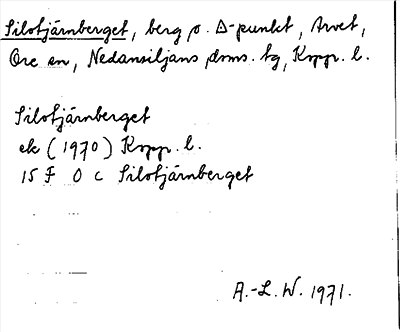 Silotjärnberget, berg o. Δ-punkt, Arvet,
Ore sn, Nedansiljans doms. tg, Kopp. l.
Silotjärnberget
ek (1970) Kopp. l.
15 F 0 c Silotjärnberget
A.-L. W. 1971.